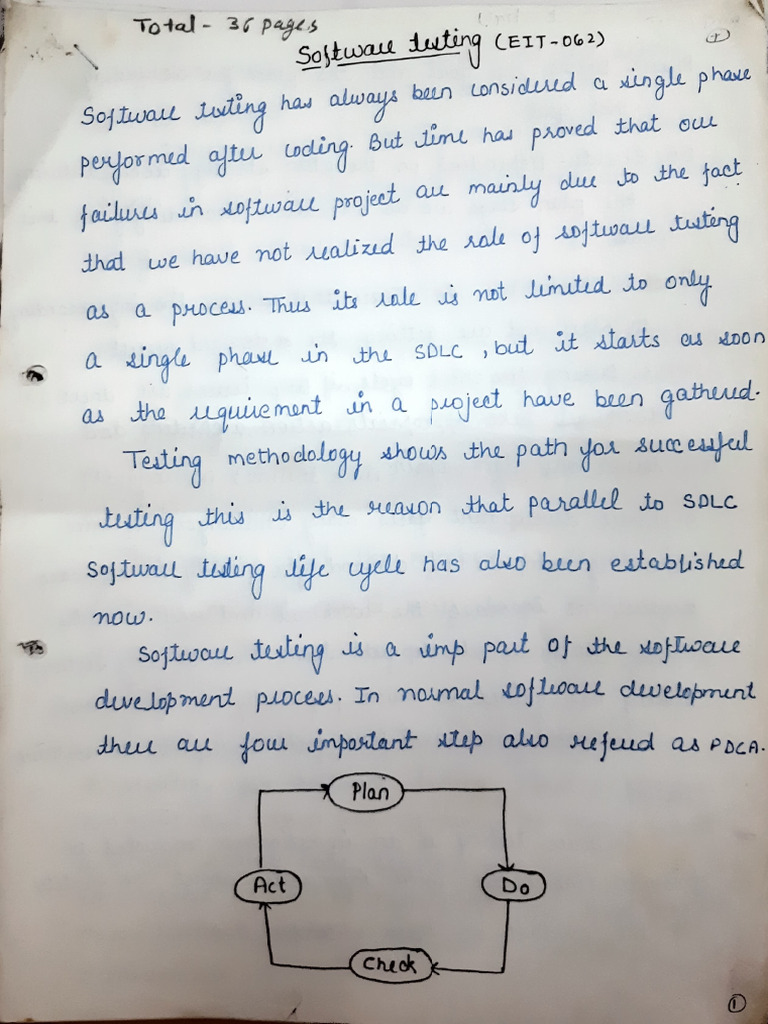 Total - 36 pages
Software testing (EIT-062)
1
Software testing has always been considered a single phase
performed after coding. But time has proved that our
failures in software project are mainly due to the fact
that we have not realized the role of software testing
as a process. Thus its role is not limited to only
a single phase in the SDLC, but it starts as soon
as the requirement in a project have been gathered.
Testing methodology shows the path for successful
testing this is the reason that parallel to SDLC
Software testing life cycle has also been established
now.
Software testing is a imp part of the software
development process. In normal software development
there are four important step also referred as PDCA.
Plan
Act
Do
Check
1